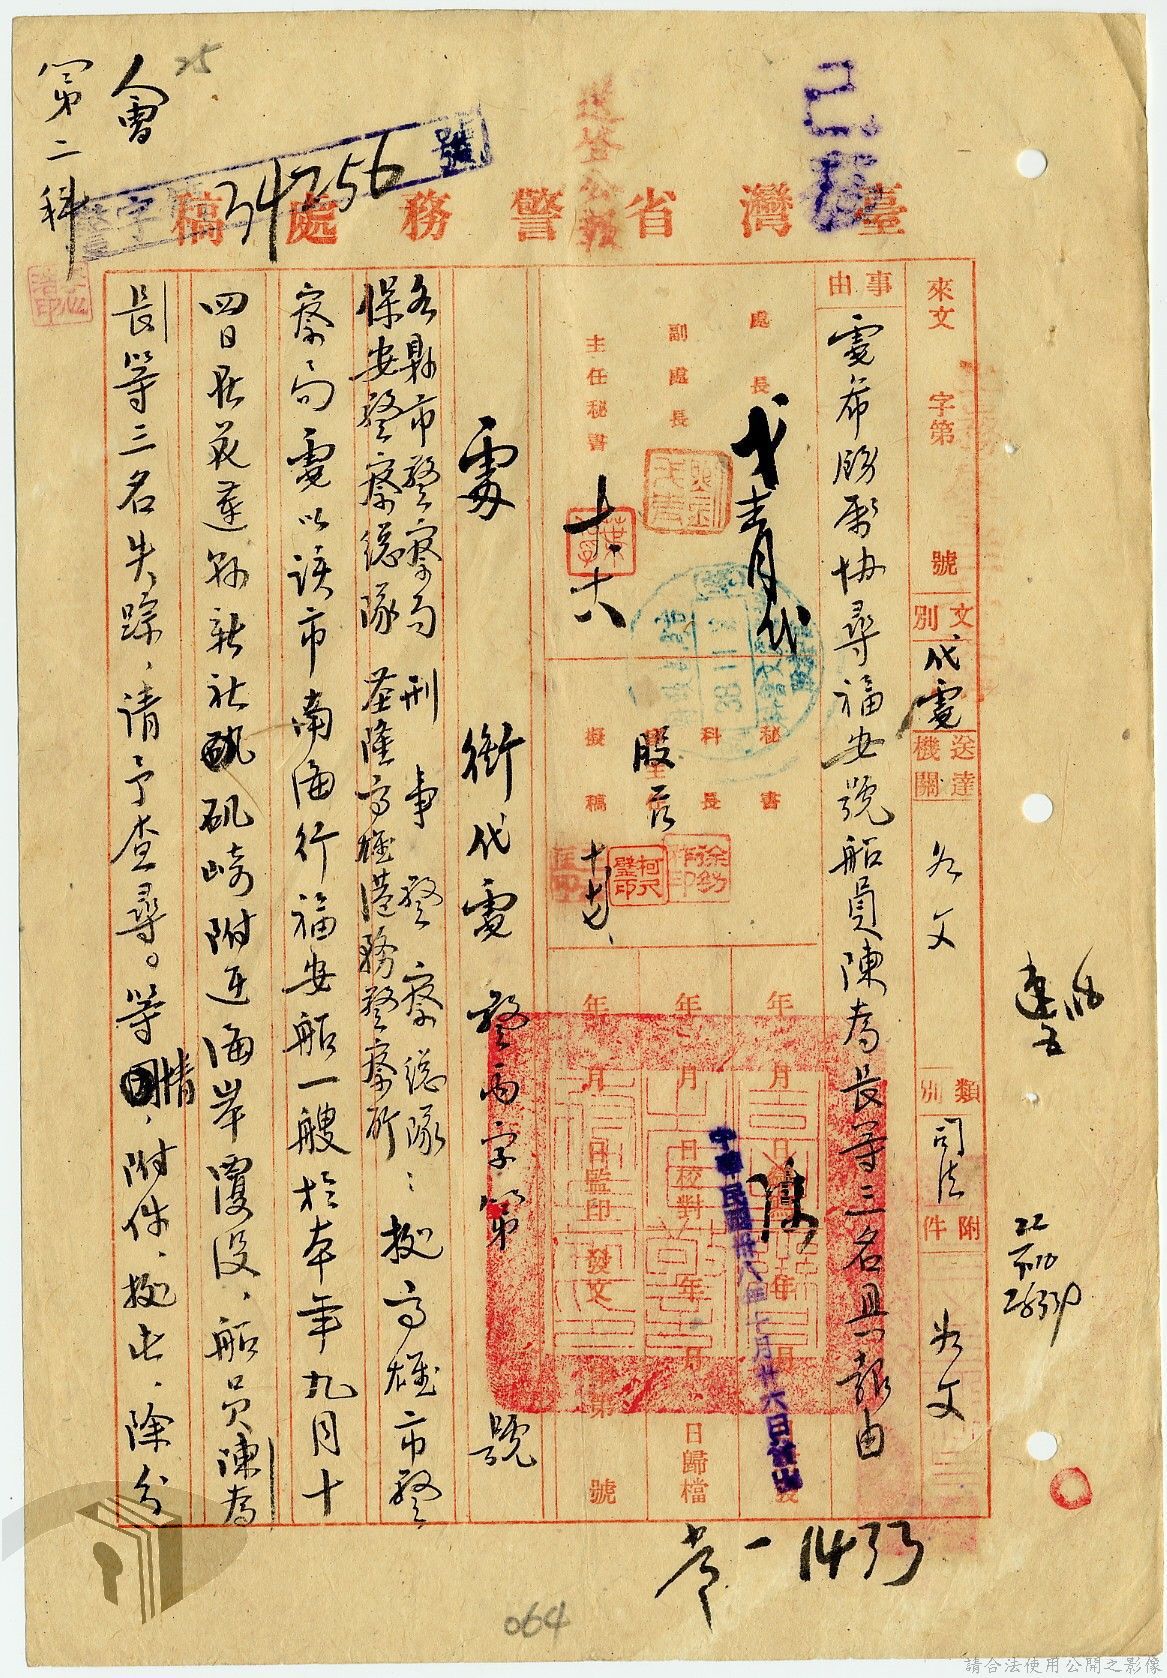 25
會
第二科
送登公報
34256
號
臺灣省警務處稿
來文 字第 號
文別 代電
送達機關 各文
類別 司法
附件 如文
事由
電希飭屬協尋福安號船員陳為長等三名具報由
處長
副處長
主任秘書
十、六
秘書
科長
股長
擬稿
38.11
陳
年 月 日
年 月 日校對
年 月 日監印
年 月 日歸檔
發文 字第 號
中華民國卅八年十月廿六日發出
電 銜代電 警丙字第 號
各縣市警察局 刑事警察總隊：據高雄市警
保安警察總隊 基隆高雄港務警察所
察局電以該市南海行福安船一艘於本年九月十
四日在花蓮縣新社磯崎附近海岸覆沒，船員陳為
長等三名失踪，請予查尋。等情，附件，據此，除分
卷一1433
064
請合法使用公開之影像